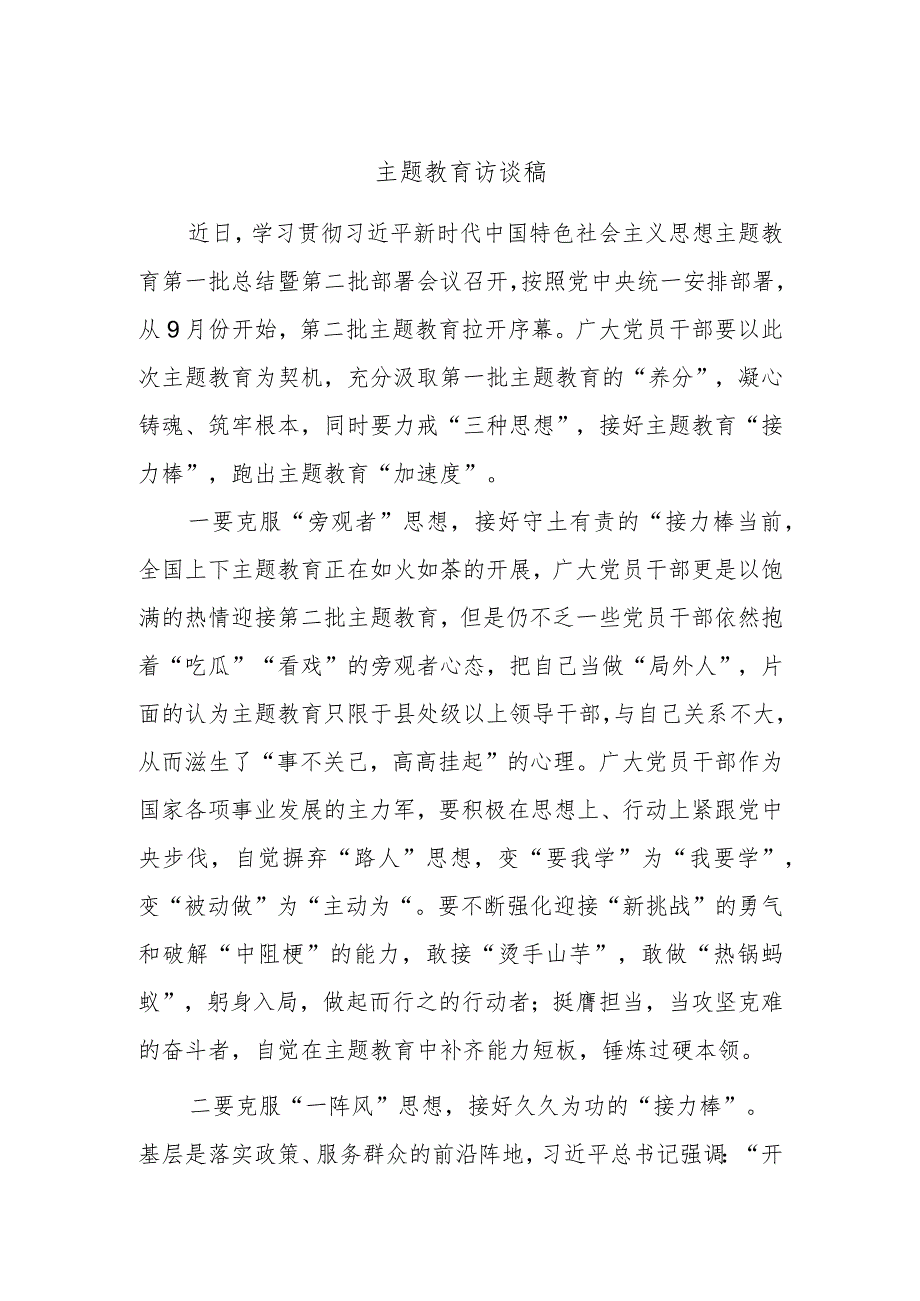 主题教育访谈稿
近日，学习贯彻习近平新时代中国特色社会主义思想主题教
育第一批总结暨第二批部署会议召开，按照党中央统一安排部署，
从 9 月份开始，第二批主题教育拉开序幕。广大党员干部要以此
次主题教育为契机，充分汲取第一批主题教育的“养分”，凝心
铸魂、筑牢根本，同时要力戒“三种思想”，接好主题教育“接
力棒”，跑出主题教育“加速度”。
一要克服“旁观者”思想，接好守土有责的“接力棒当前，
全国上下主题教育正在如火如荼的开展，广大党员干部更是以饱
满的热情迎接第二批主题教育，但是仍不乏一些党员干部依然抱
着“吃瓜”“看戏”的旁观者心态，把自己当做“局外人”，片
面的认为主题教育只限于县处级以上领导干部，与自己关系不大，
从而滋生了“事不关己，高高挂起”的心理。广大党员干部作为
国家各项事业发展的主力军，要积极在思想上、行动上紧跟党中
央步伐，自觉摒弃“路人”思想，变“要我学”为“我要学”，
变“被动做”为“主动为“。要不断强化迎接“新挑战”的勇气
和破解“中阻梗”的能力，敢接“烫手山芋”，敢做“热锅蚂
蚁”，躬身入局，做起而行之的行动者；挺膺担当，当攻坚克难
的奋斗者，自觉在主题教育中补齐能力短板，锤炼过硬本领。
二要克服“一阵风”思想，接好久久为功的“接力棒”。
基层是落实政策、服务群众的前沿阵地，习近平总书记强调：“开